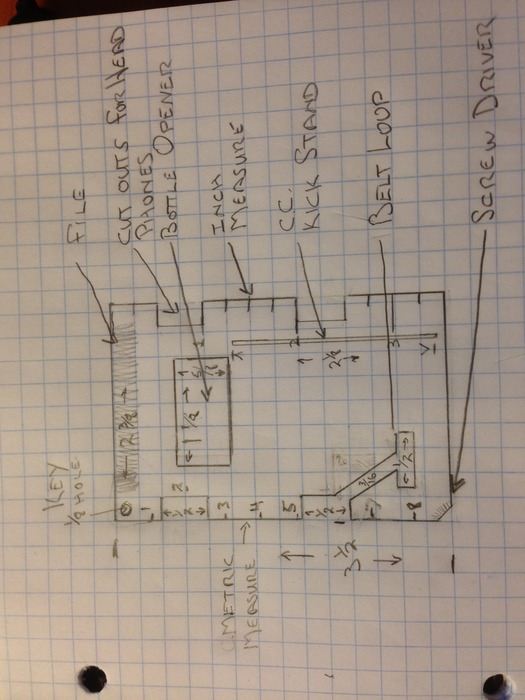 FILE
CUT OUTS FOR HEAD
PHONES
BOTTLE OPENER
INCH
MEASURE
C.C.
KICK STAND
BELT LOOP
SCREW DRIVER
KEY
1/8 HOLE
← 2 3/4 →
← 1 1/2 →
1
2
3
1
2 1/2
1
1/2
2
3
4
5
1/2
7
8
3/16
← 1/2 →
METRIC
MEASURE
3 1/2